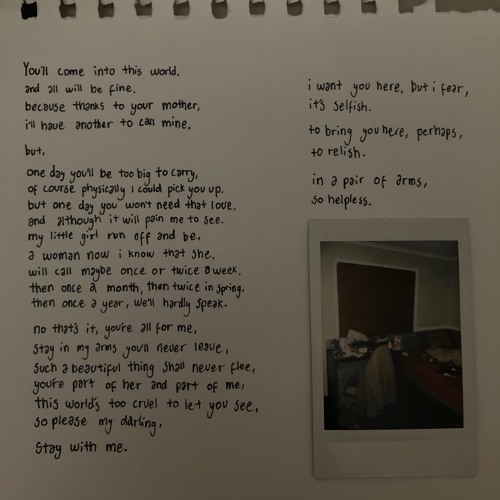 You'll come into this world,
and all will be fine.
because thanks to your mother,
i'll have another to call mine.
but,
one day you'll be too big to carry,
of course physically I could pick you up.
but one day you won't need that love.
and although it will pain me to see.
my little girl run off and be.
a woman now i know that she,
will call maybe once or twice a week.
then once a month, then twice in spring.
then once a year, we'll hardly speak.
no that's it, you're all for me,
stay in my arms you'll never leave,
such a beautiful thing shall never flee,
you're part of her and part of me,
this world's too cruel to let you see,
so please my darling,
stay with me.
i want you here, but i fear,
it's selfish.
to bring you here, perhaps,
to relish.
in a pair of arms,
so helpless.